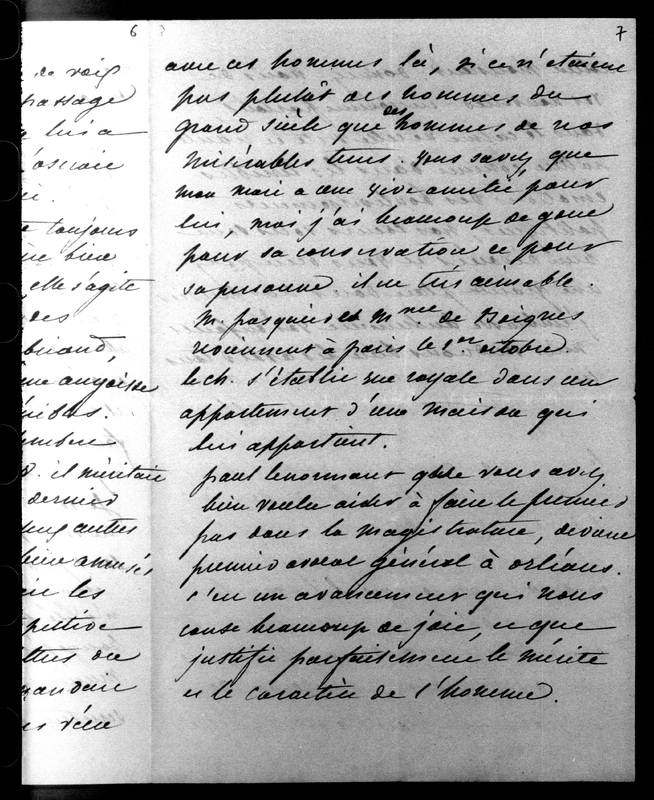 6
7
de voir
passage
lui a
toujours
bien
elle s'agite
des
briand,
une angoisse
nibus.
il méritait
dernier
autres
bien amusés
les
des
avec ces hommes là, si ce n'étaient
pas plutôt des hommes du
grand siècle que des hommes de nos
misérables tems. vous savez que
mon mari a une vive amitié pour
lui, moi j'ai beaucoup de goût
pour sa conversation et pour
sa personne. il est très aimable.
M. pasquier et Mme de Boignes
reviennent à paris le 1er octobre.
le ch. s'établit rue royale dans un
appartement d'une maison qui
lui appartient.
paul lenormant que vous avez
bien voulu aider à faire le premier
pas dans la magistrature, devient
premier avocat général à orléans.
c'est un avancement qui nous
cause beaucoup de joie, et que
justifie parfaitement le mérite
et le caractère de l'homme.